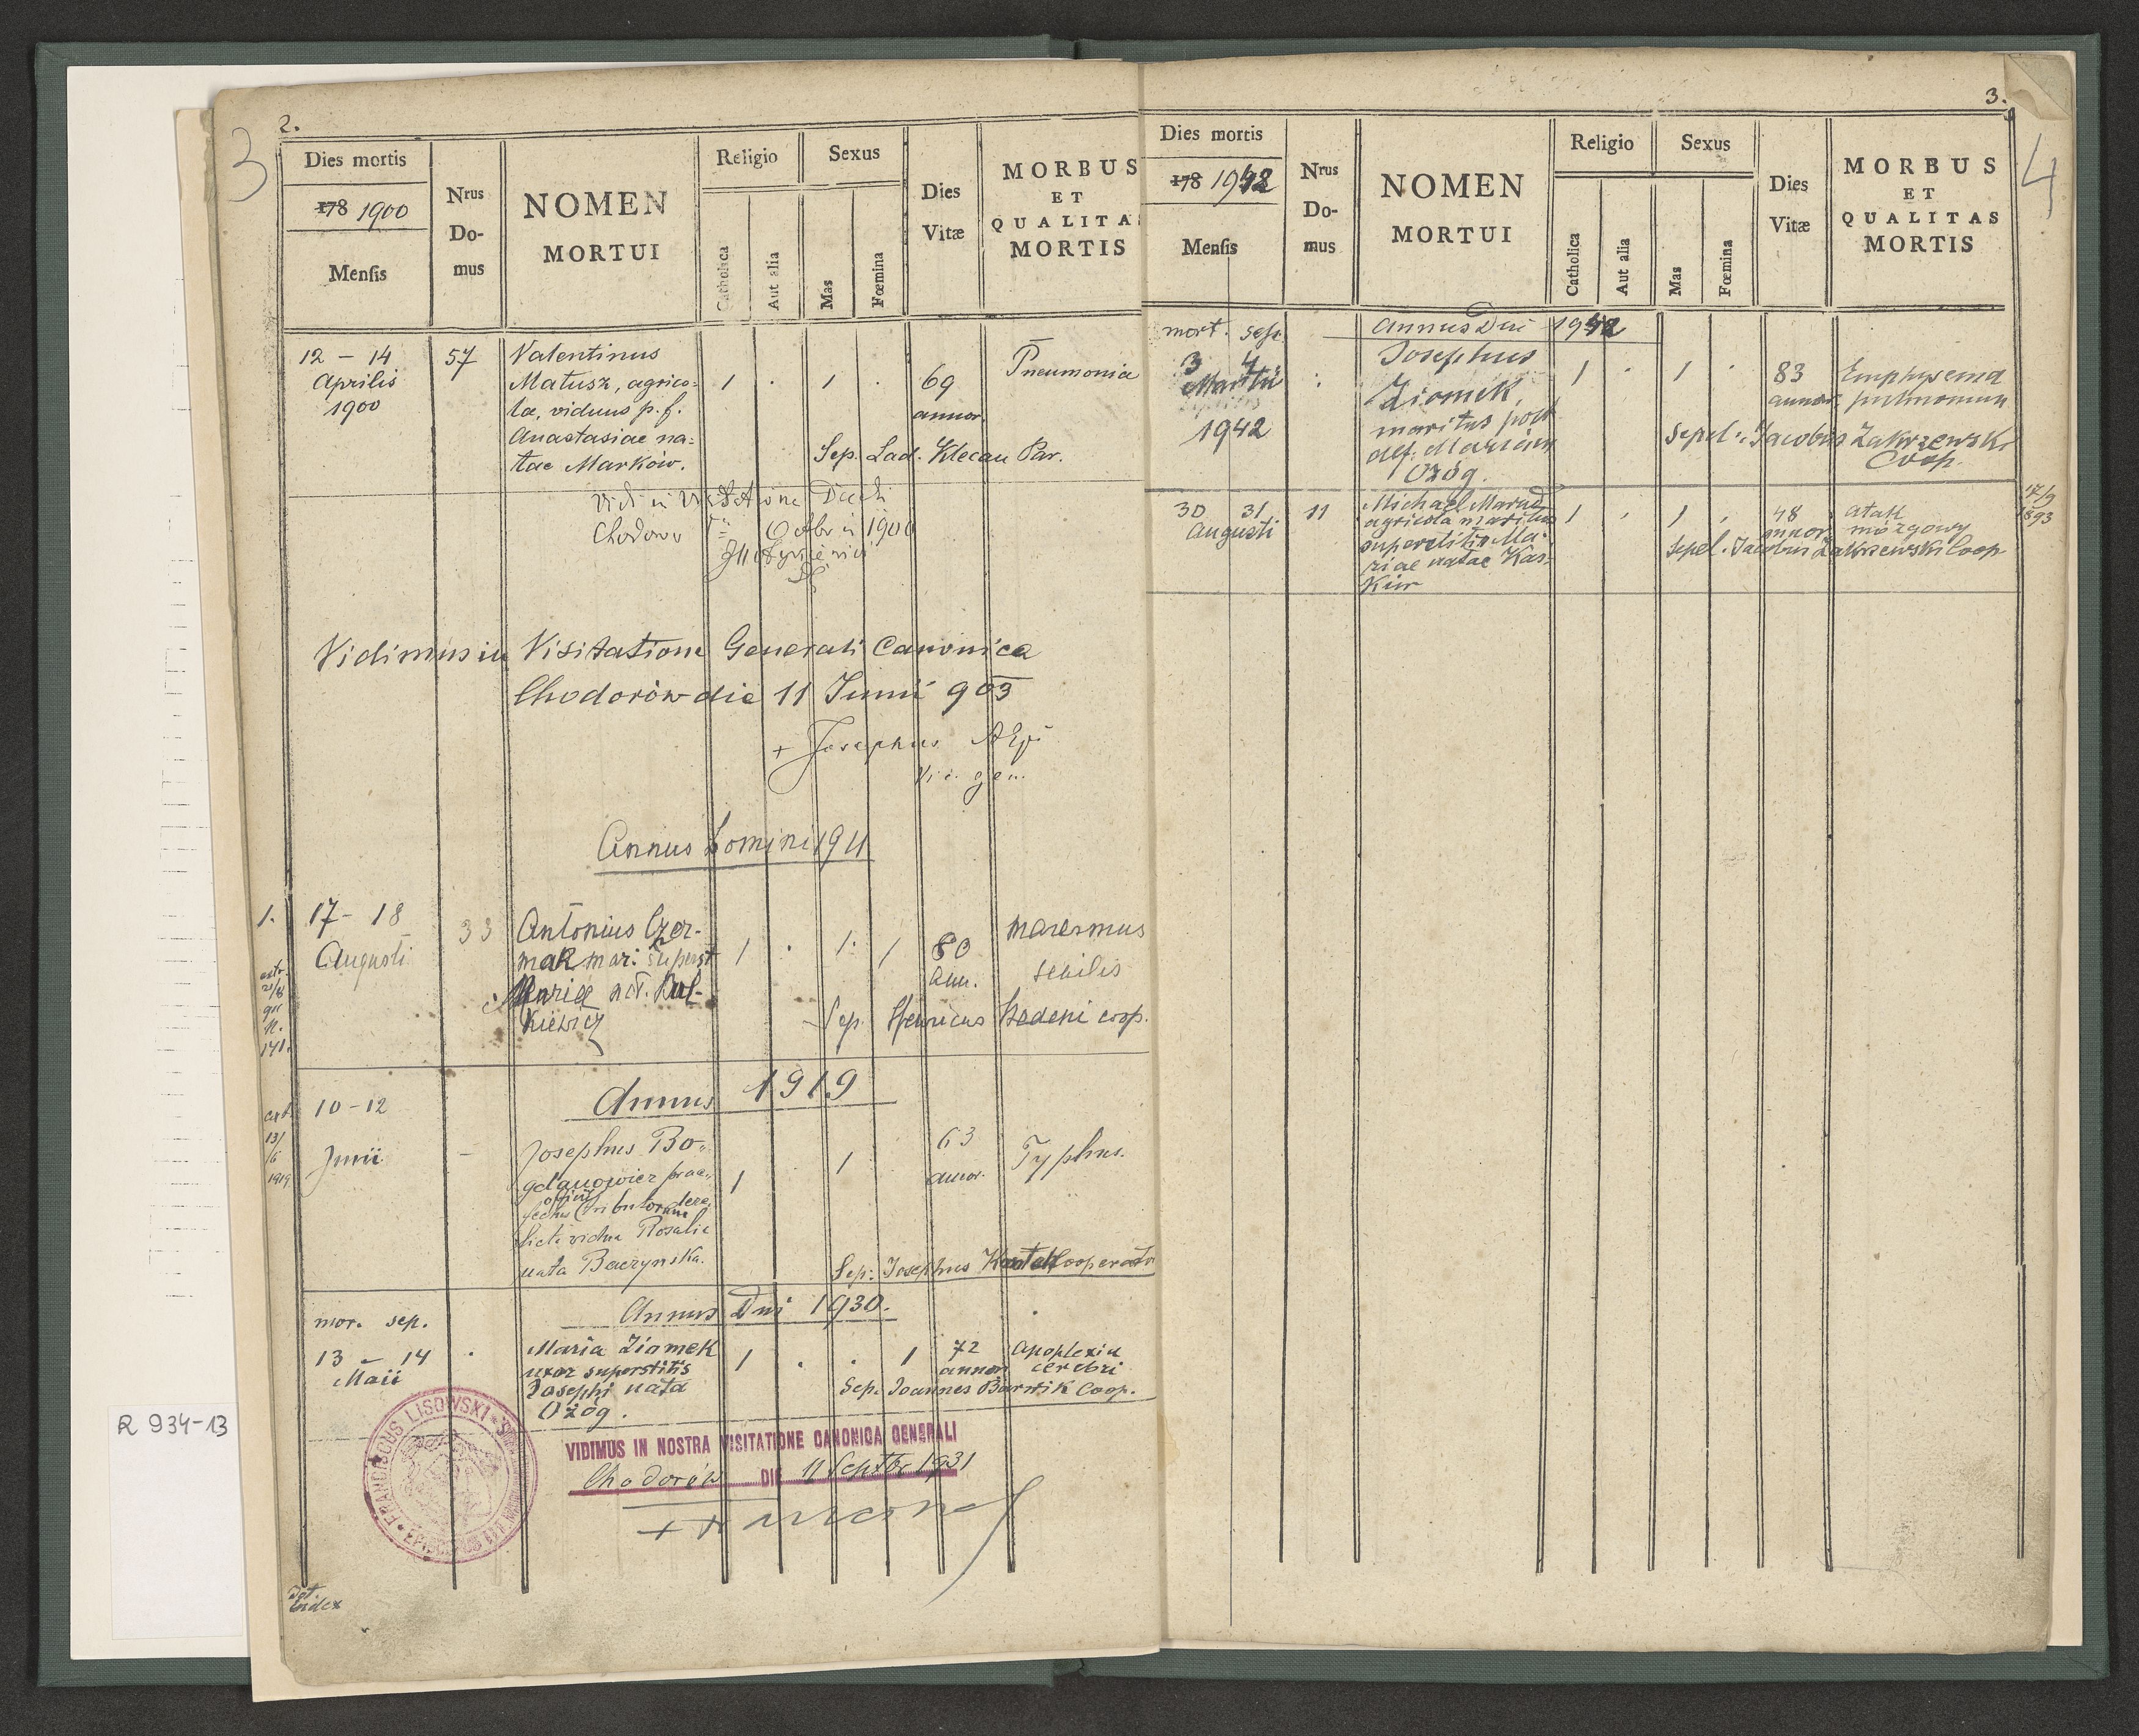 3
2.
Dies mortis
178 1900
Mensis
Nrus
Do-
mus
NOMEN
MORTUI
Religio
Catholica
Aut alia
Sexus
Mas
Fœmina
Dies
Vitæ
MORBUS
ET
QUALITA
MORTIS
12 – 14
Aprilis
1900
57
Valentinus
Matusz, agrico=
lae, viduus p. f.
Anastasiae na=
tae Marków.
1 . 1 .
69
annor.
Pneumonia
Sep. Lad. Klecan Par.
Vidi in Visitatione Decli
Octobr 1900
Vidimus in Visitatione Generali Canonica
Chodorów die 11 Junii 903
+ Josephus
Vic. gen.
Annus Domini 1911
1.
17 - 18
Augusti
33
Antonius Czer-
mak mari. superst
Mariae nat. Rut-
kiewicz
1 . 1. 1
80
ann.
marasmus
senilis
Sep. Henricus Badeni coop.
Annus 1919
ext.
13/
/6
1919
10-12
Junii
-
Josephus Bo-
gdanowicz prae-
fectus officii tributorum dere-
licta vidua Rosalia
nata Baczynska.
1 1
63
annor.
Typhus.
Sep: Josephus Cooperator
Annus Dni 1930.
mor. sep.
13 – 14
Maii
Maria Ziomek
uxor superstitis
Josephi nata
Ożóg.
1 . . 1
72
annor
apoplexia
cerebri
Sep. Joannes Bartik Coop.
FRANCISCUS LISOWSKI
VIDIMUS IN NOSTRA VISITATIONE CANONICA GENERALI
Chodorów DIE 11 Septbr 1931
Index
R 934-13
3.
4
Dies mortis
178 1942
Mensis
Nrus
Do-
mus
NOMEN
MORTUI
Religio
Catholica
Aut alia
Sexus
Mas
Fœmina
Dies
Vitæ
MORBUS
ET
QUALITAS
MORTIS
Annus Dni 1942
mort. sep.
3 4
Martii
1942
Josephus
Ziomek,
maritus post
def. Mariam
Ożóg.
1 . 1 .
83
annor.
Emphysema
pulmonum
Sepel.: Jacobus Zakrzewski
Coop.
30 31
Augusti
11
Michael Marud
agricola maritus
superstitis Ma-
riae natae Kas-
kiw
1 . 1 .
48
annor
atak
mózgowy
Sepel. Jacobus Zakrzewski Coop
17/9
1893